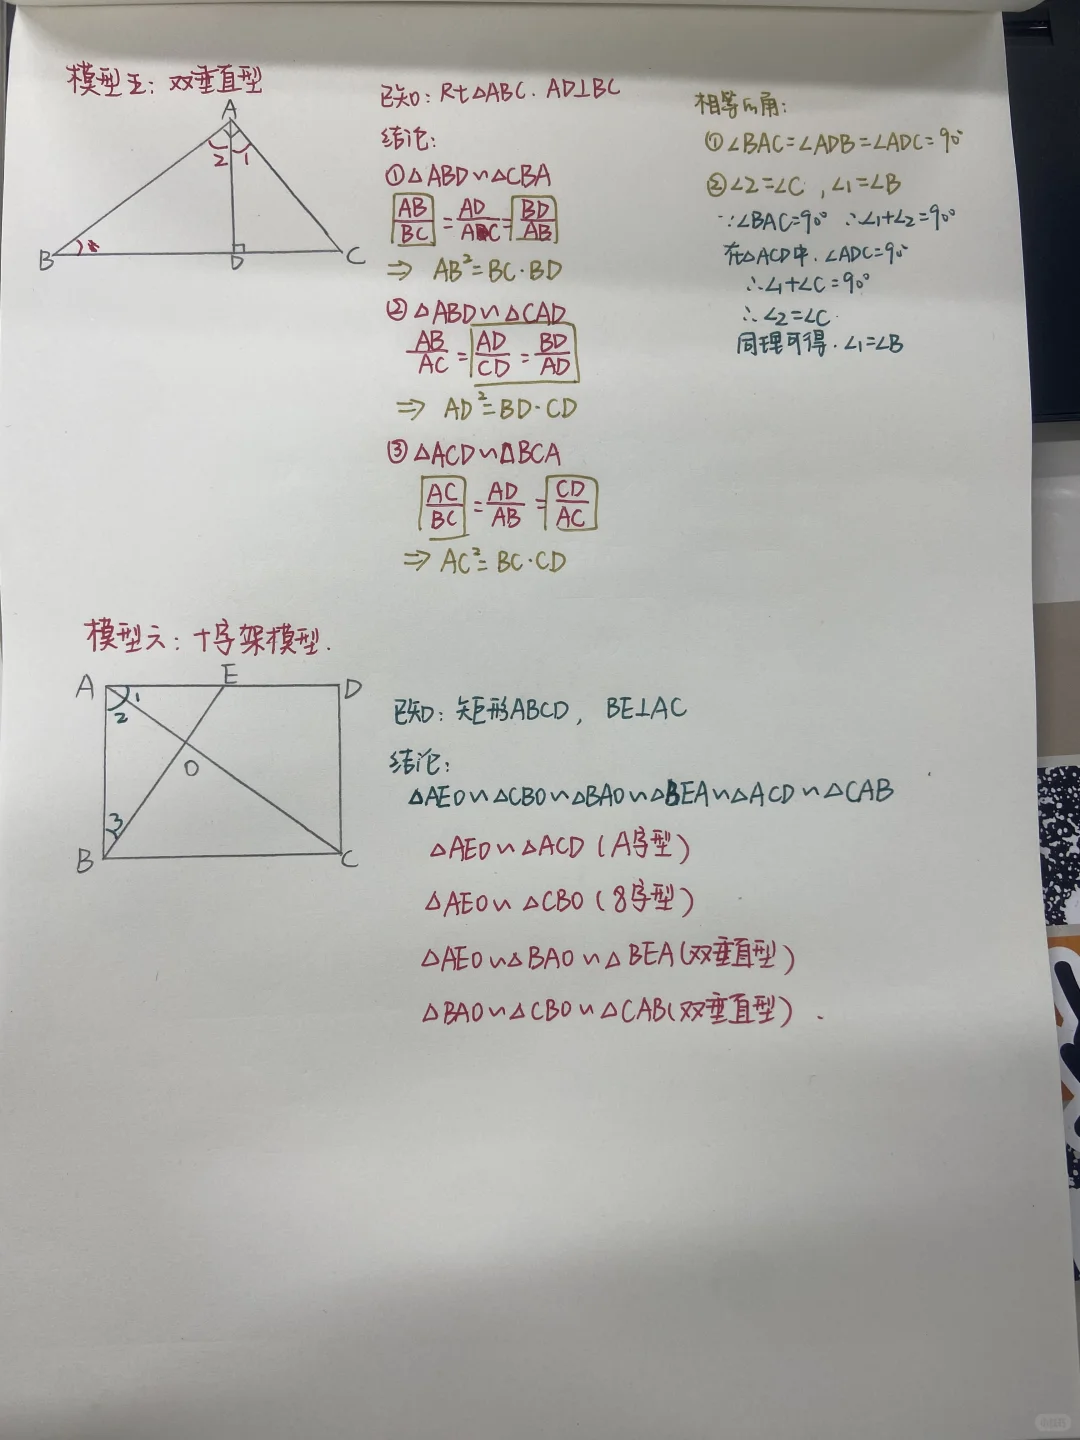 模型五：双垂直型
A
2 1
B D C
已知：Rt△ABC. AD⊥BC
结论：
①△ABD∽△CBA
AB/BC = AD/AC = BD/AB
⇒ AB²=BC·BD
②△ABD∽△CAD
AB/AC = AD/CD = BD/AD
⇒ AD²=BD·CD
③△ACD∽△BCA
AC/BC = AD/AB = CD/AC
⇒ AC²=BC·CD
相等的角：
①∠BAC=∠ADB=∠ADC=90°
②∠2=∠C，∠1=∠B
∵∠BAC=90° ∴∠1+∠2=90°
在△ACD中.∠ADC=90°
∴∠1+∠C=90°
∴∠2=∠C.
同理可得.∠1=∠B
模型六：十字架模型.
A E D
1
2
O
3
B C
已知：矩形ABCD，BE⊥AC
结论：
△AEO∽△CBO∽△BAO∽△BEA∽△ACD∽△CAB
△AEO∽△ACD（A字型）
△AEO∽△CBO（8字型）
△AEO∽△BAO∽△BEA（双垂直型）
△BAO∽△CBO∽△CAB（双垂直型）.